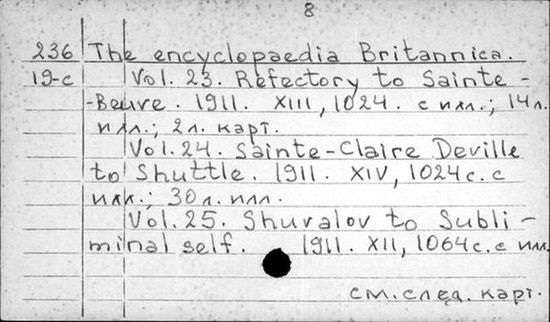 8
236 The encyclopaedia Britannica.
19-c Vol. 23. Refectory to Sainte-
-Beuve. 1911. XIII, 1024. с илл.; 14 л.
илл.; 2 л. карт.
Vol. 24. Sainte-Claire Deville
to Shuttle. 1911. XIV, 1024 с. с
илл.; 30 л. илл.
Vol. 25. Shuvalov to Subli-
minal self. 1911. XII, 1064 с. с илл.
см. след. карт.